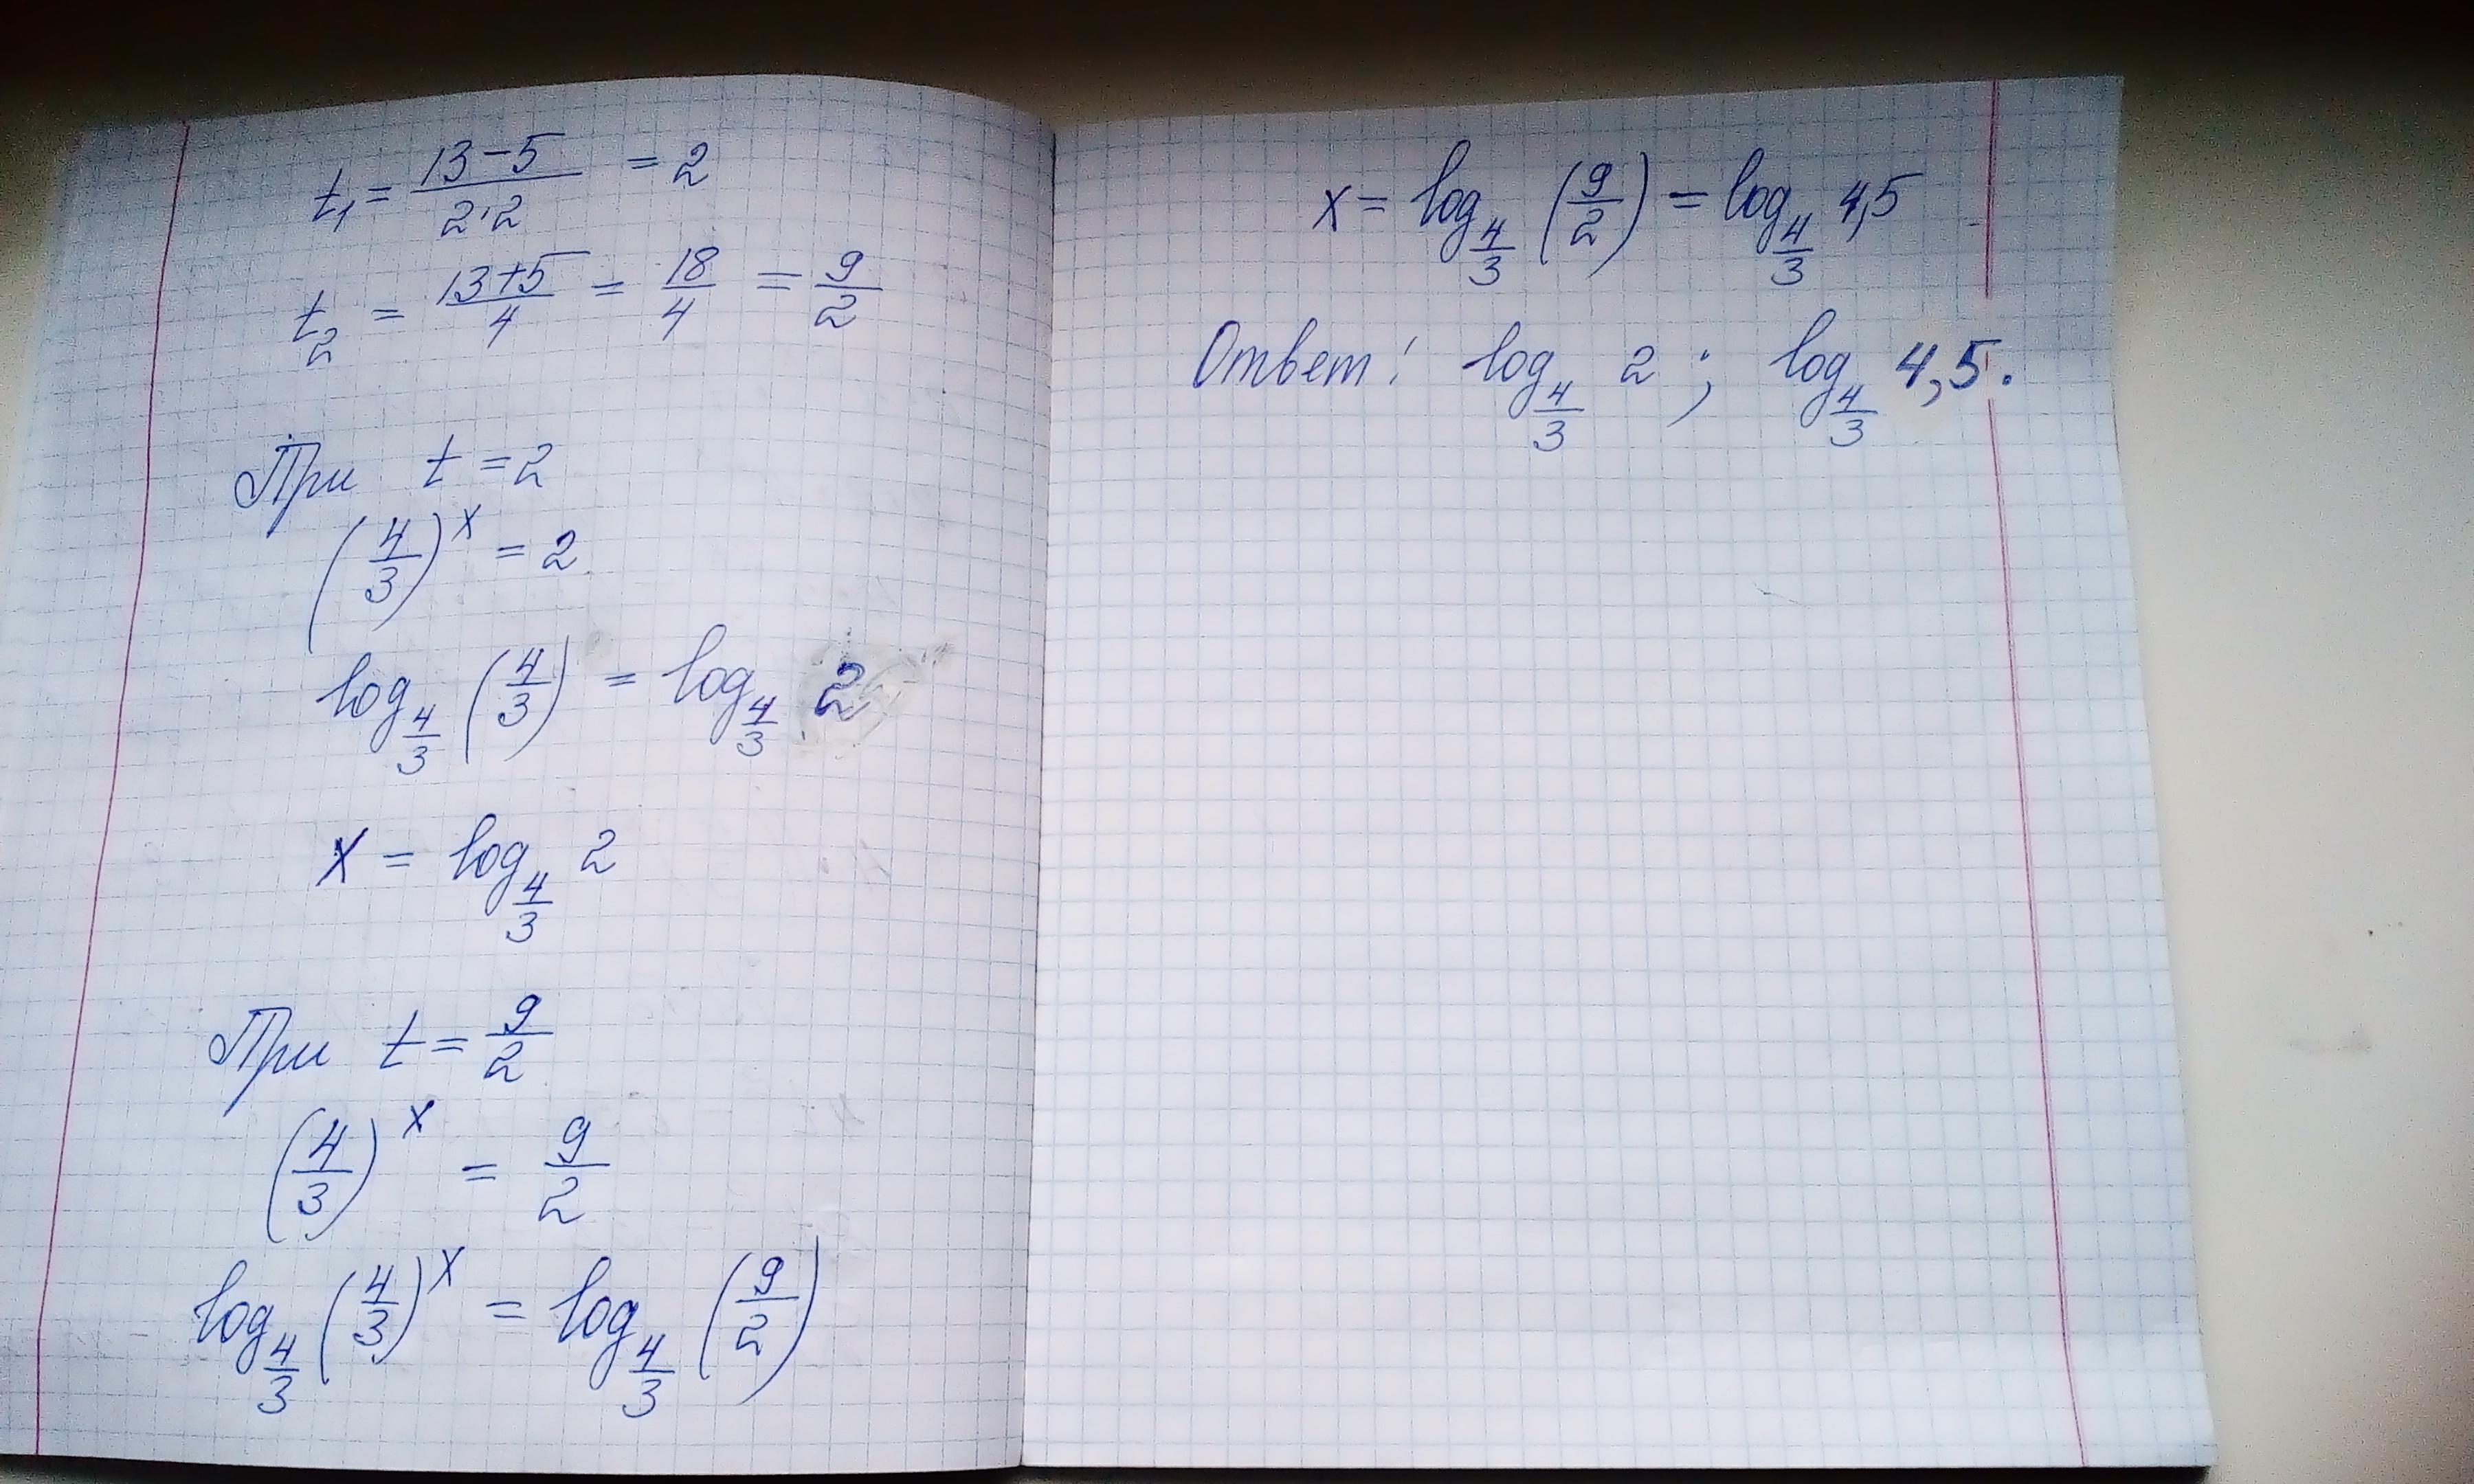 t₁ = (13-5)/(2·2) = 2
t₂ = (13+5)/4 = 18/4 = 9/2
При t = 2
(4/3)^x = 2
log_{4/3} (4/3) = log_{4/3} 2
x = log_{4/3} 2
При t = 9/2
(4/3)^x = 9/2
log_{4/3} (4/3)^x = log_{4/3} (9/2)
x = log_{4/3} (9/2) = log_{4/3} 4,5
Ответ: log_{4/3} 2; log_{4/3} 4,5.